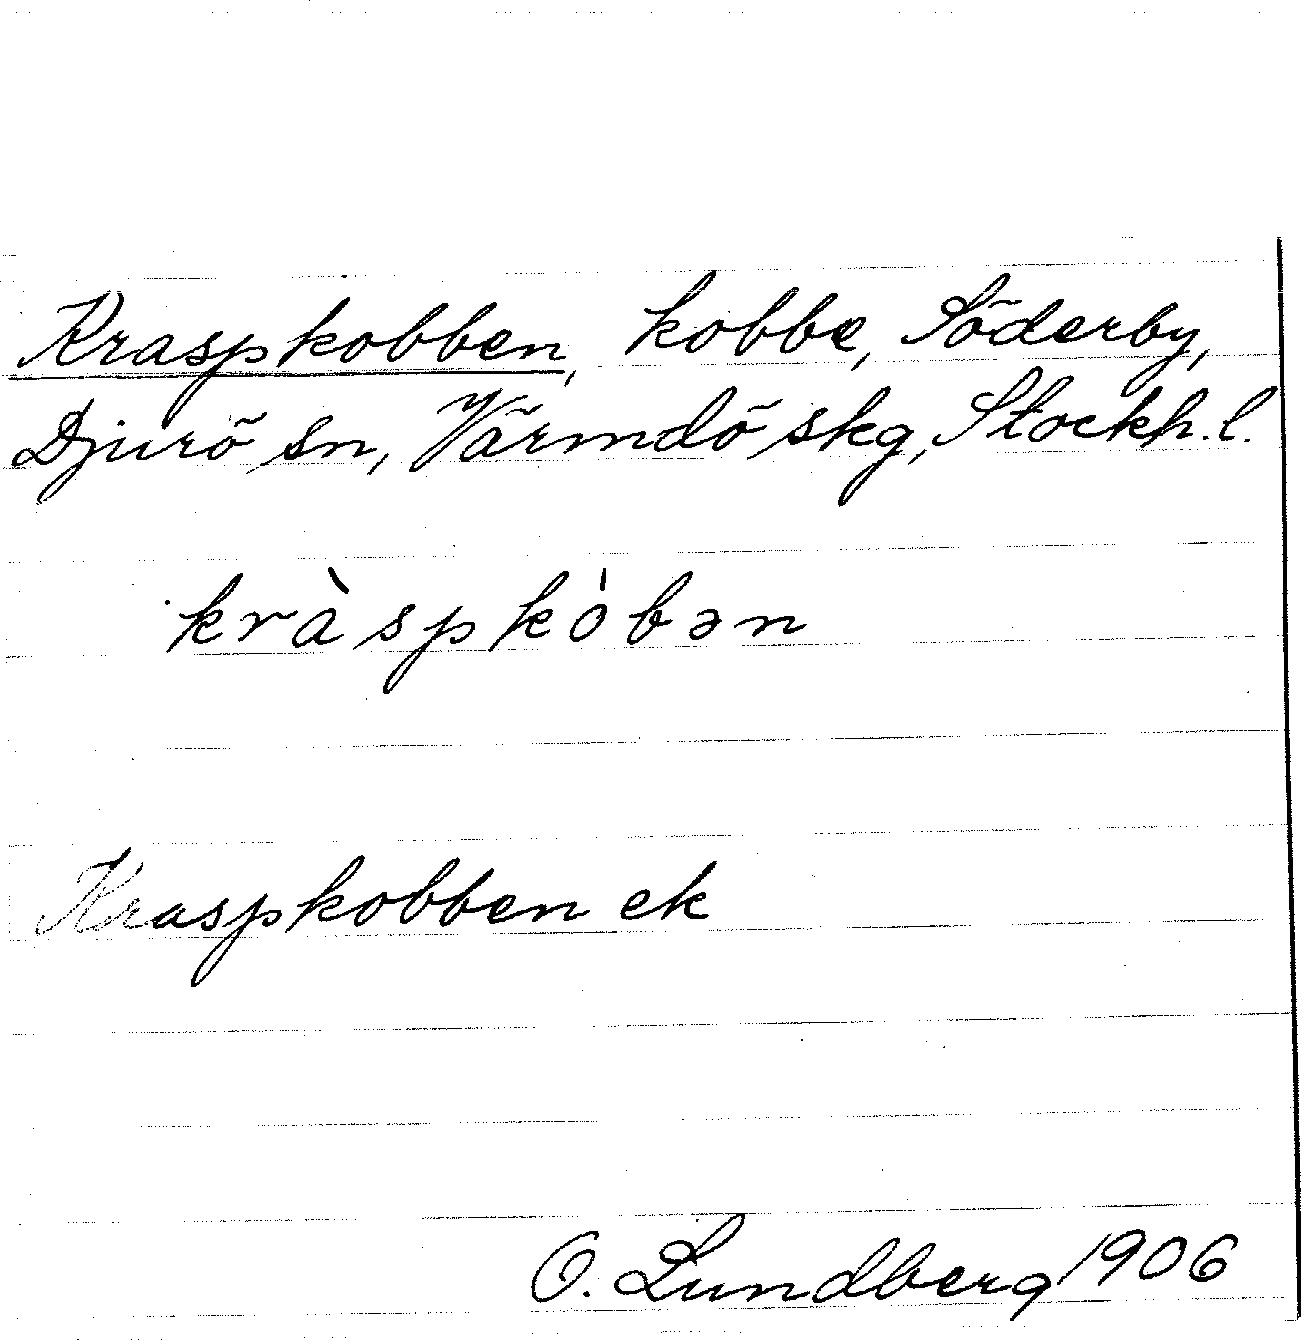 Kraspkobben, kobbe, Söderby,
Djurö sn, Värmdö skg, Stockh.l.
kràspkòbən
Kraspkobben ek
O. Lundberg 1906